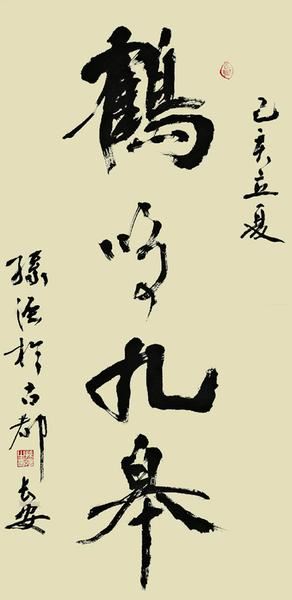 己亥立夏
鶴鳴九皋
孫於古都長安